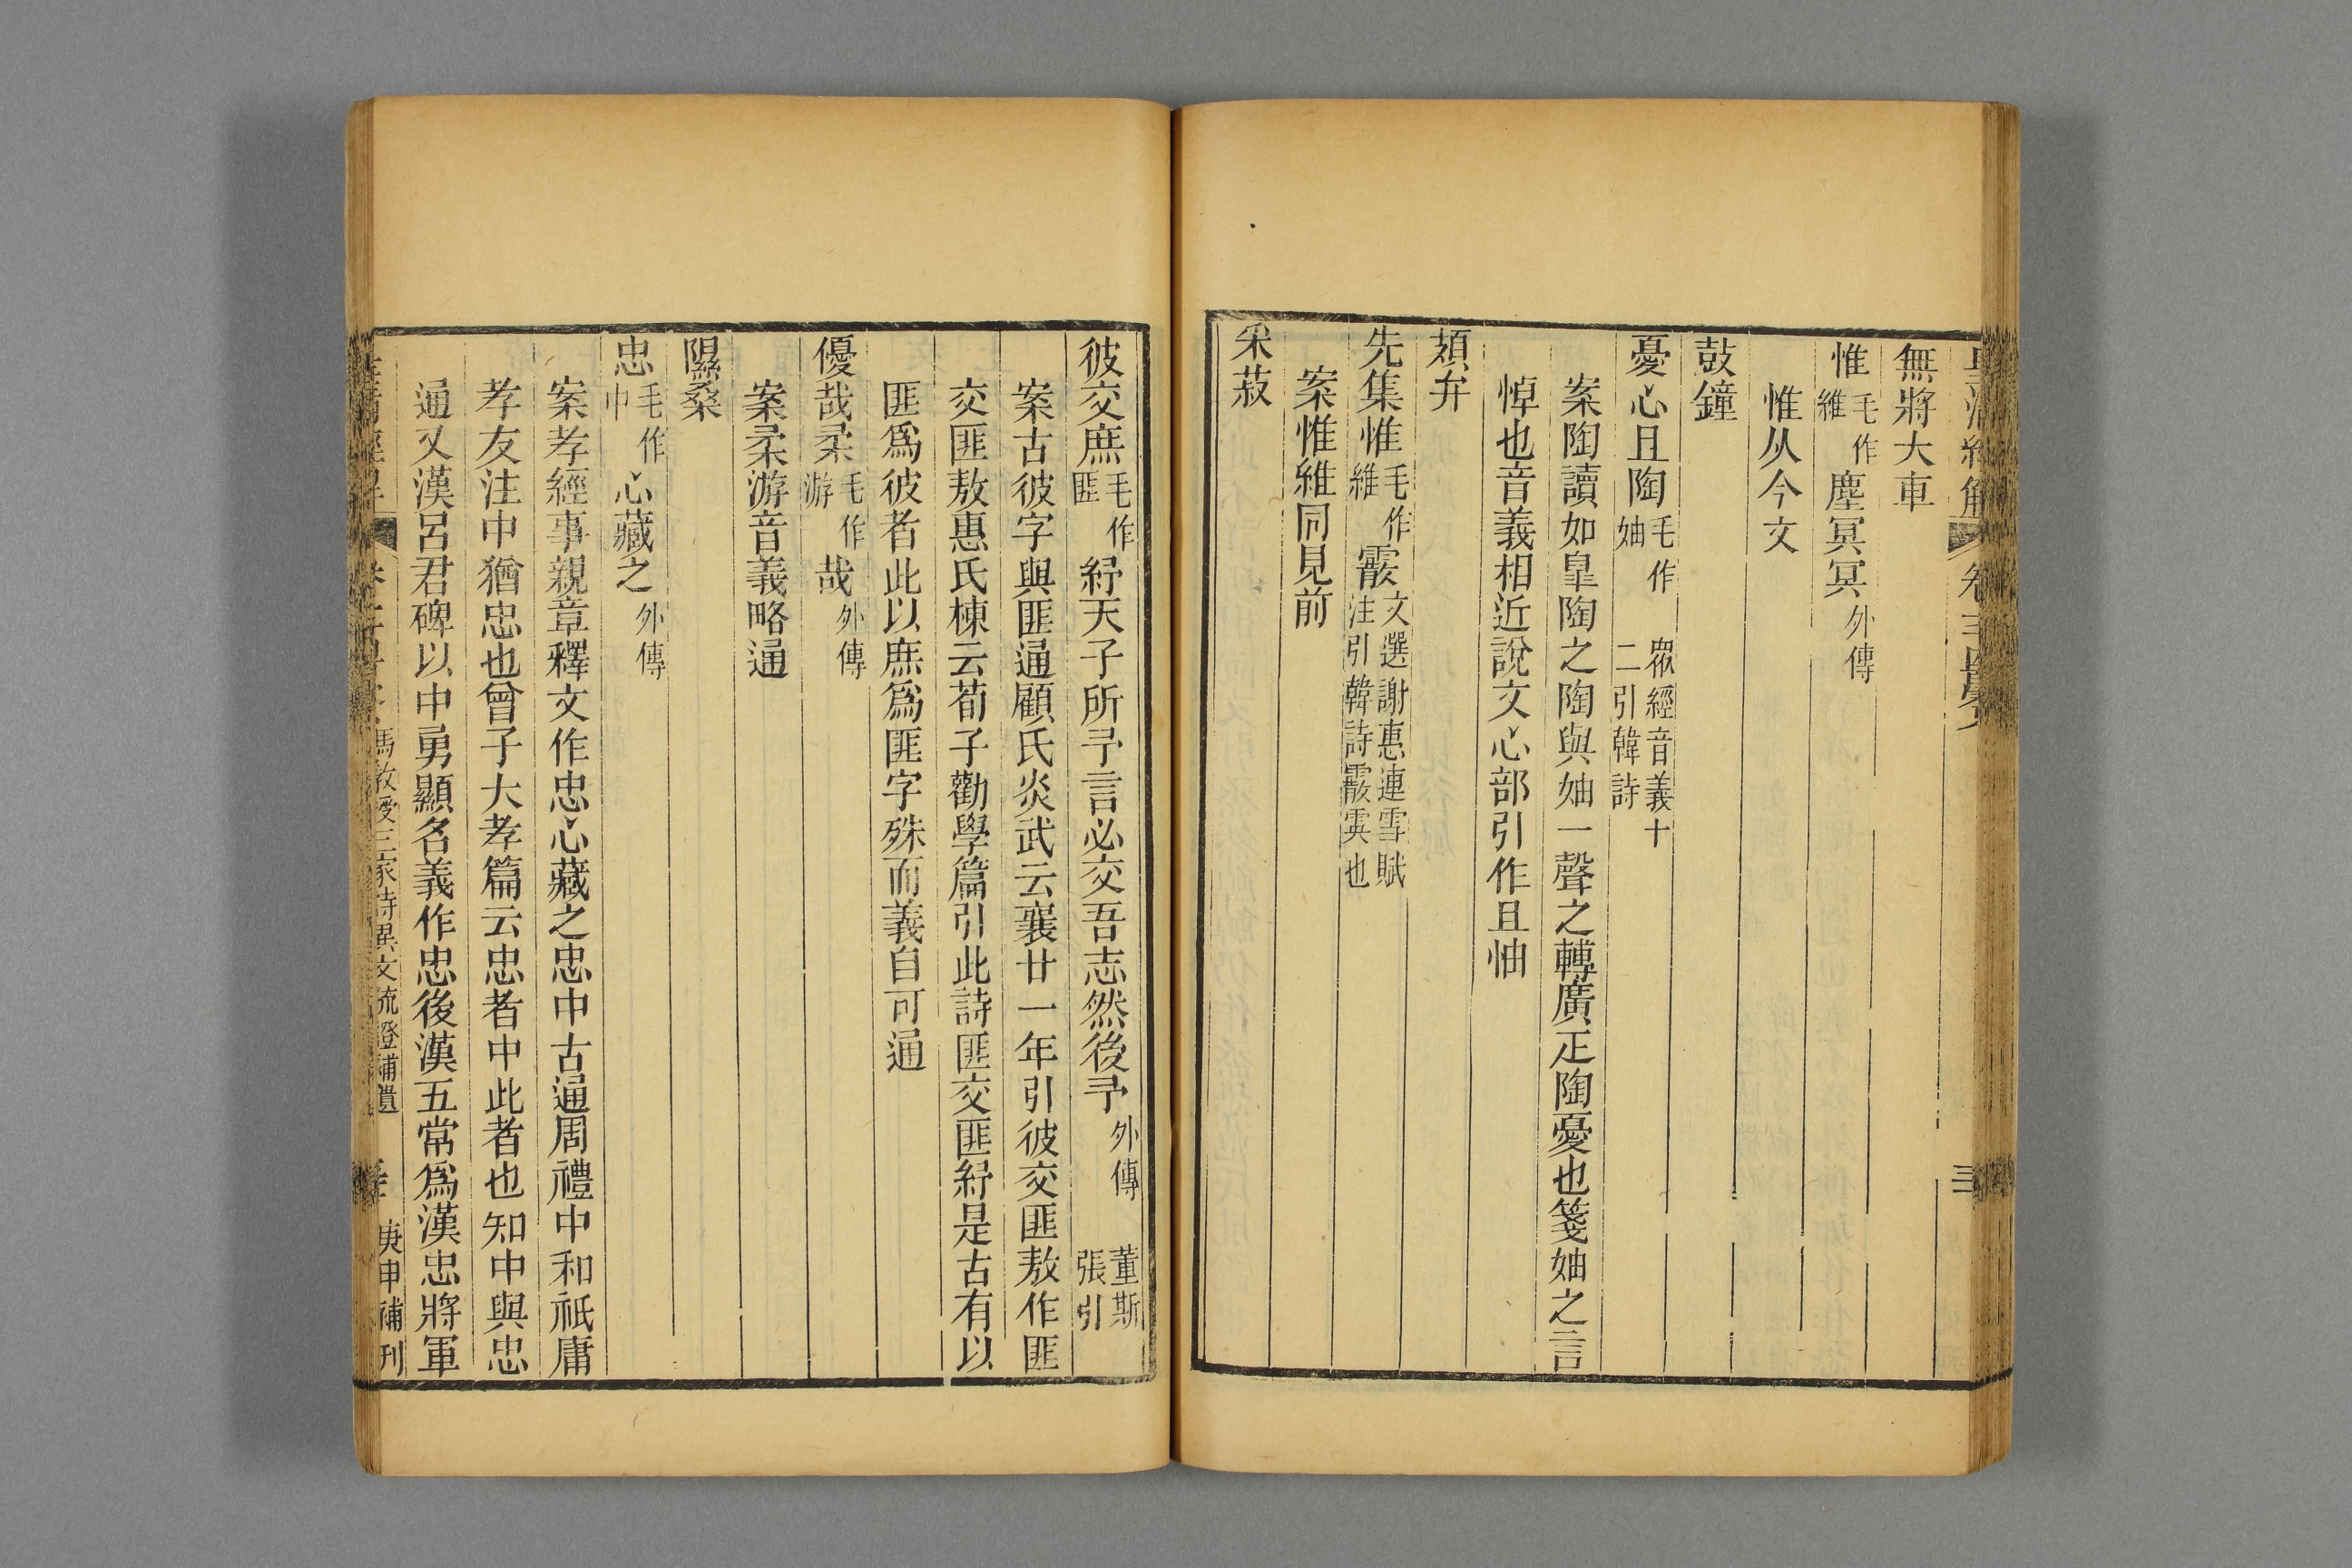 無將大車
惟毛作維塵冥冥外傳
惟从今文
鼓鐘
憂心且陶毛作妯 眾經音義十二引韓詩
案陶讀如臯陶之陶與妯一聲之轉廣疋陶憂也箋妯之言
悼也音義相近說文心部引作且怞
頍弁
先集惟毛作維霰文選謝惠連雪賦注引韓詩霰霙也
案惟維同見前
采菽
彼交庶毛作匪紓天子所予言必交吾志然後予外傳 董斯張引
案古彼字與匪通顧氏炎武云襄廿一年引彼交匪敖作匪
交匪敖惠氏棟云荀子勸學篇引此詩匪交匪紓是古有以
匪爲彼者此以庶爲匪字殊而義自可通
優哉柔毛作游哉外傳
案柔游音義略通
隰桑
忠毛作中心藏之外傳
案孝經事親章釋文作忠心藏之忠中古通周禮中和祇庸
孝友注中猶忠也曾子大孝篇云忠者中此者也知中與忠
通又漢呂君碑以中勇顯名義作忠後漢五常爲漢忠將軍
馮教授三家詩異文疏證補遺
庚申補刊